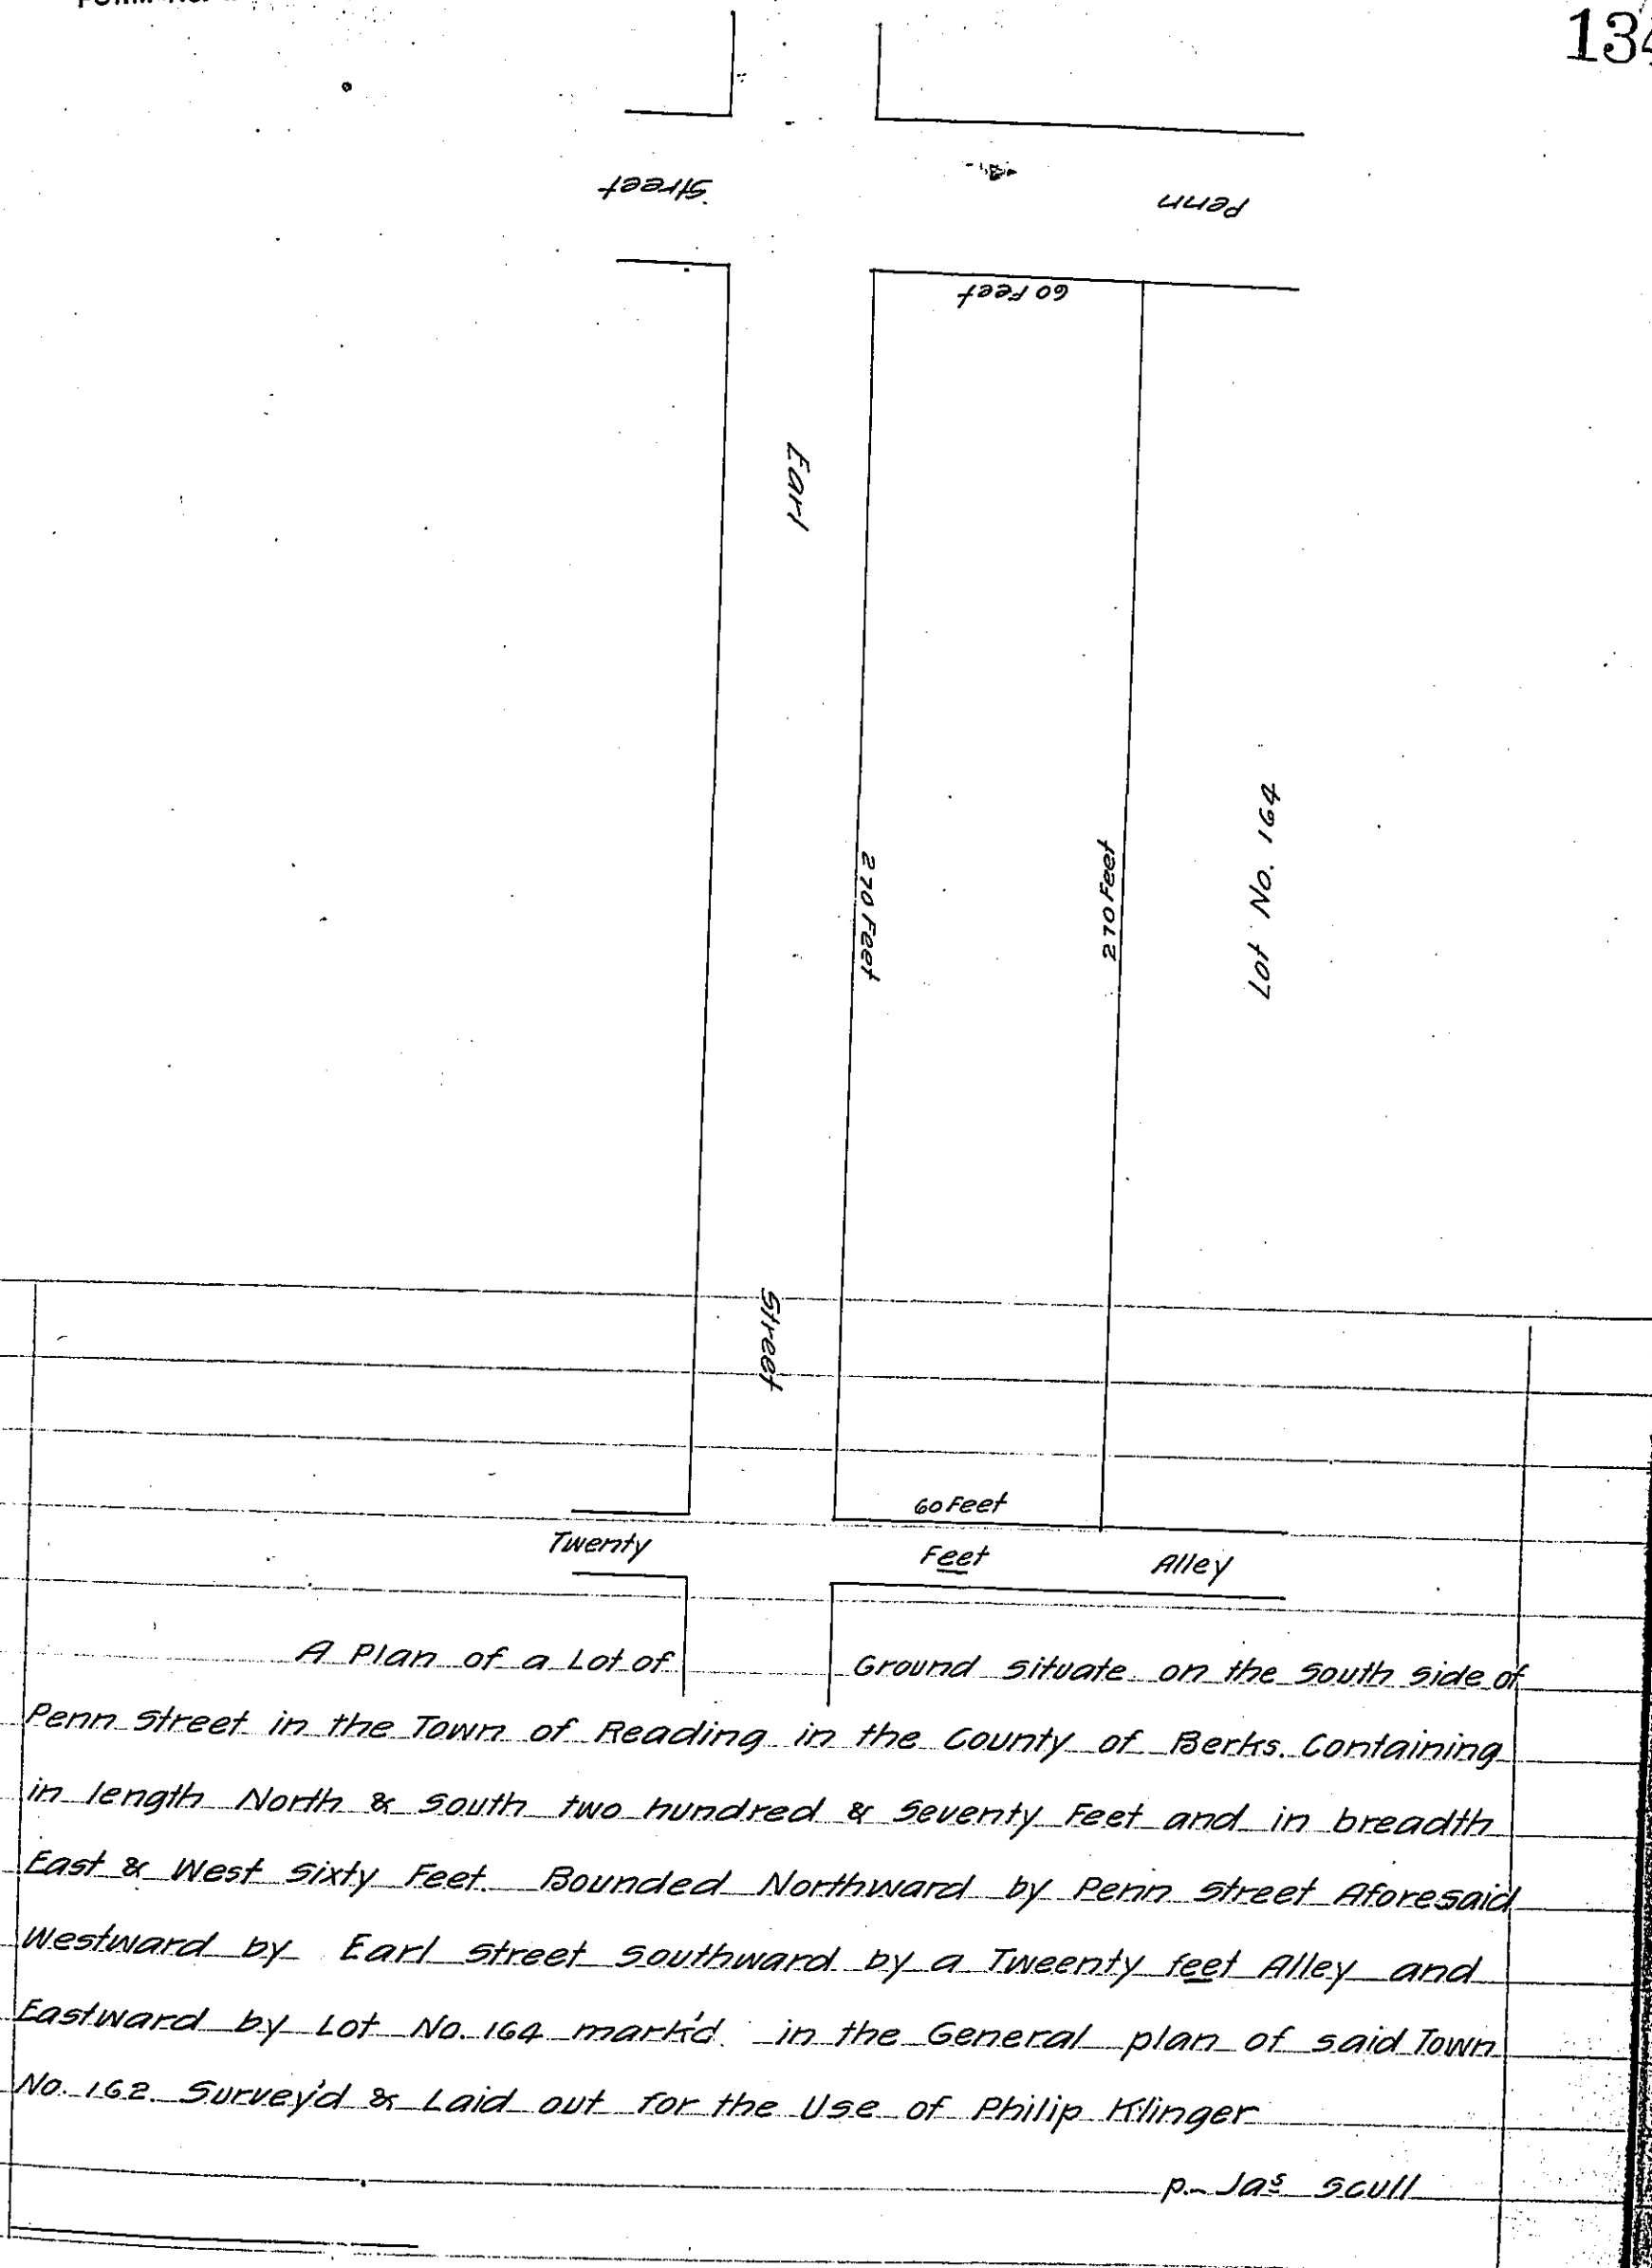 134
Street Penn
60 Feet
Earl
270 Feet
270 Feet
Lot No. 164
Street
60 Feet
Twenty Feet Alley
A Plan of a Lot of Ground situate on the South side of
Penn Street in the Town of Reading in the County of Berks. Containing
in length North & South two hundred & Seventy Feet and in breadth
East & West Sixty Feet. Bounded Northward by Penn Street Aforesaid
Westward by Earl Street Southward by a Tweenty feet Alley and
Eastward by Lot No. 164 mark'd in the General plan of said Town
No. 162. Survey'd & Laid out for the Use of Philip Klinger
p. Jas Scull